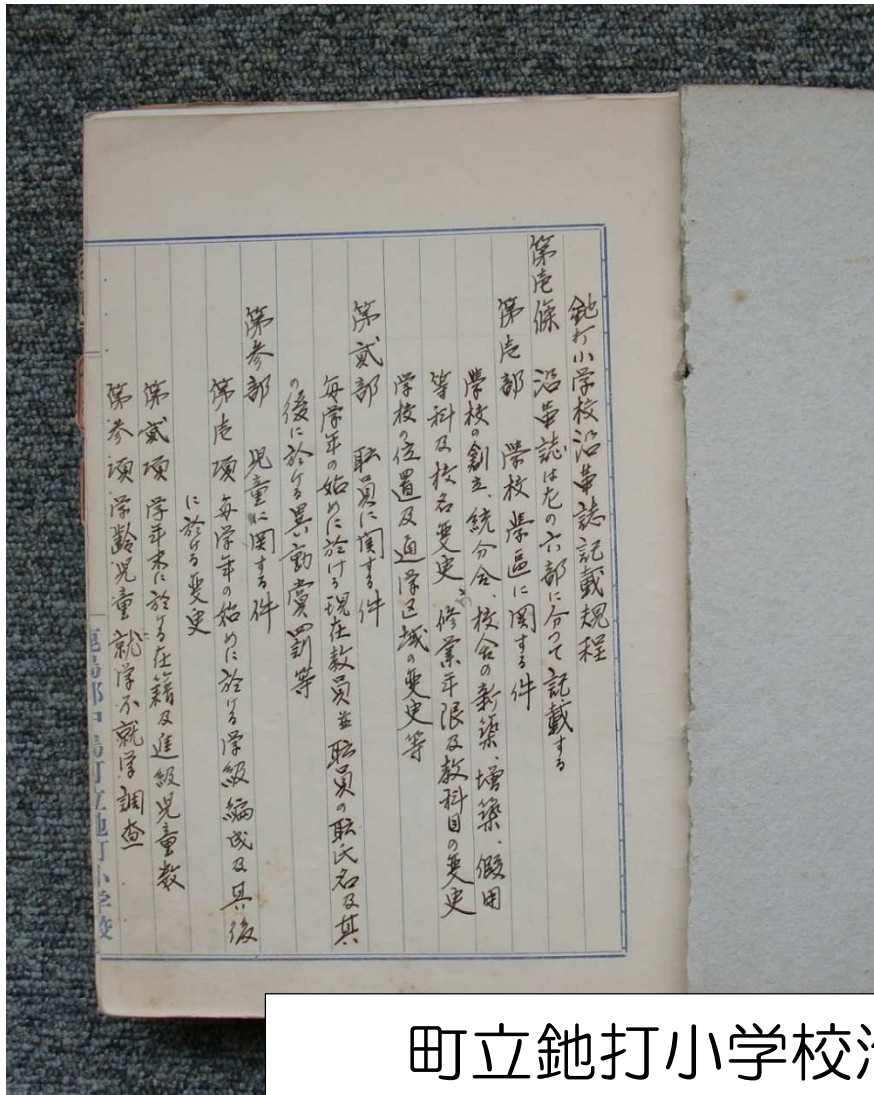 鉇打小学校沿革誌記載規程
第壱條 沿革誌は左の六部に分つて記載する
第壱部 学校学區に関する件
学校の創立、統分合、校舎の新築、増築、假用
等科及校名変更、修業年限及教科目の変更
学校の位置及通学区域の変更等
第貳部 職員に関する件
毎学年の始めに於ける現在教員並職員の職氏名及其
の後に於ける異動賞罰等
第参部 児童に関する件
第壱項 毎学年の始めに於ける学級編成及其後
に於ける変更
第貳項 学年末に於ける在籍及進級児童数
第参項 学齢児童就学不就学調査
鹿島郡中島町立鉇打小学校
町立鉇打小学校